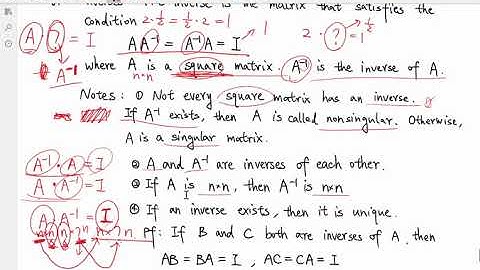 Inverse The inverse is the matrix that satisfies the
condition 2·½=½·2=1
A·?=I AA⁻¹=A⁻¹A=I 1 2·?=1 ½
A⁻¹ where A is a square matrix. A⁻¹ is the inverse of A.
n×n
Notes: ① Not every square matrix has an inverse.
If A⁻¹ exists, then A is called nonsingular. Otherwise,
A is a singular matrix.
A⁻¹·A=I ② A and A⁻¹ are inverses of each other.
A·A⁻¹=I ③ If A is n×n, then A⁻¹ is n×n
A A⁻¹=I ④ If an inverse exists, then it is unique.
Pf: If B and C both are inverses of A, then
AB=BA=I, AC=CA=I